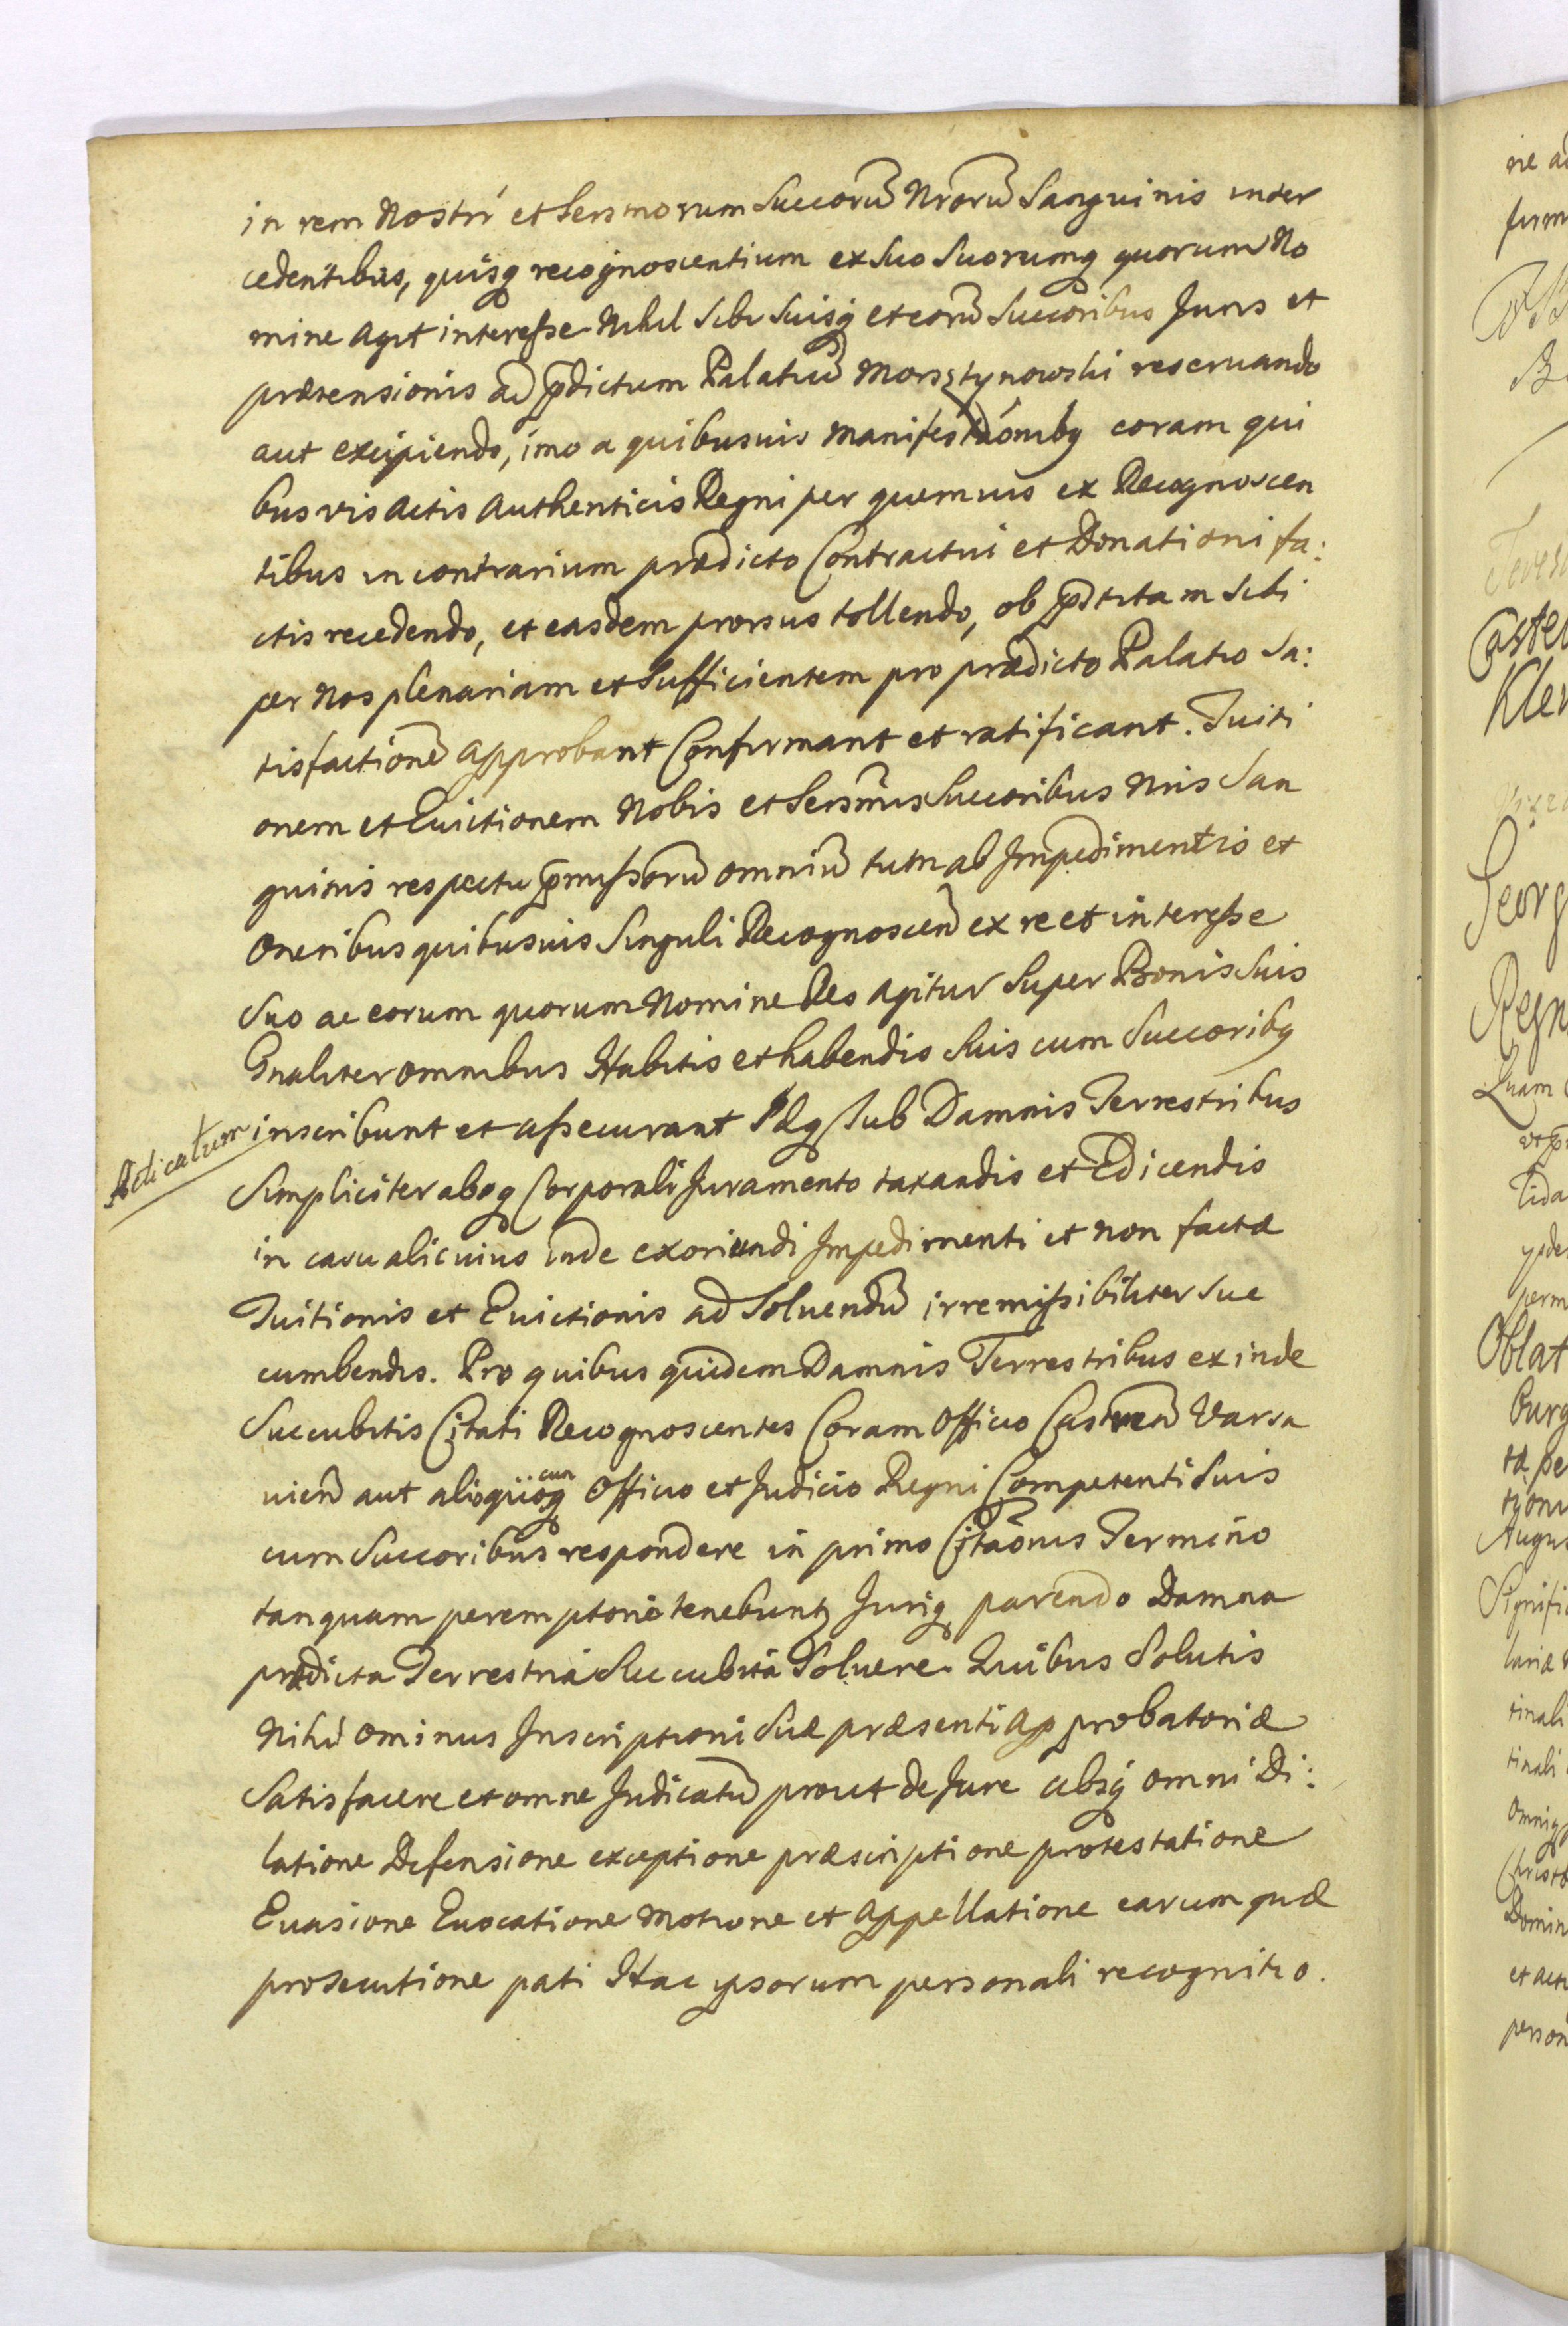 in rem Nostri et Sersmorum Succorũ Nrorũ Sanguinis inter
cedentibus, quisq recognoscentium ex Suo Suorumq quorum No
mine agit interesse Nihil Sibi Suisq et eorũ Succoribus Juris et
prætensionis ad pdictum Palatiũ Morsztynowski reseruando
aut excipiendo, imo a quibusuis Manifestaõnibq coram qui
busvis Actis Authenticis Regni per quemuis ex Recognoscen
tibus in contrarium prædicto Contractui et Donationi fa:
ctis recedendo, et easdem prorsus tollendo, ob pstitam Sibi
per Nos plenariam et Sufficientem pro prædicto Palatio Sa:
tisfactionẽ approbant Confirmant et ratificant. Tuiti
onem et Euictionem Nobis et Sersmis Succoribus Nris San
guinis respectu pmissorũ omniũ tum ab Impedimentis et
Oneribus quibusuis Singuli Recognoscen ex re et interesse
Suo ac eorum quorum Nomine Res agitur Super Bonis Suis
Gnaliter omnibus Habitis et habendis Suis cum Succoribq
Adicatum inscribunt et assecurant Idq Sub Damnis Terrestribus
Simpliciter absq Corporali Juramento taxandis et Edicendis
in casu alicuius inde exoriundi Impedimenti et non factæ
Tuitionis et Euictionis ad Soluendũ irremissibiliter Suc
cumbendis. Pro quibus quidem Damnis Terrestribus exinde
Succubitis Citati Recognoscentes Coram Officio Castren Varsa
uien aut alioquocunq Officio et Judicio Regni Competenti Suis
cum Succoribus respondere in primo Citaõnis Termino
tanquam peremptorie tenebuntq Juriq parendo Damna
prædicta Terrestria Succubita Soluere. Quibus Solutis
Nihilominus Inscriptioni Suæ præsenti approbatoriæ
Satisfacere et omne Judicatũ prout de Jure absq omni Di:
latione Defensione exceptione præscriptione protestatione
Euasione Euocatione Motione et Appellatione earumquæ
prosecutione pati Hac ipsorum personali recognitio.